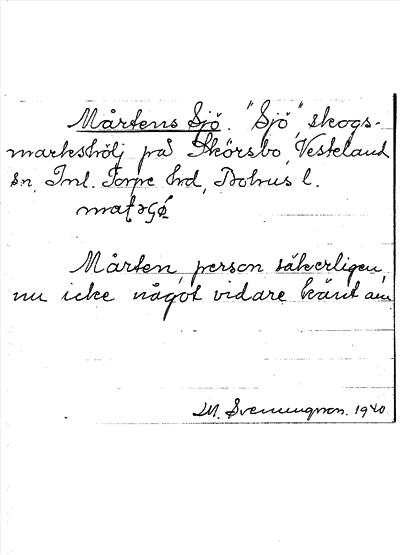 Mårtens Sjö. "Sjö", skogs-
markshölj på Skörsbo, Vesteland
sn, Inl. Torpe hd, Bohus l.
Mårten, person säkerligen,
nu icke något vidare känt om
M. Svenungson. 1940